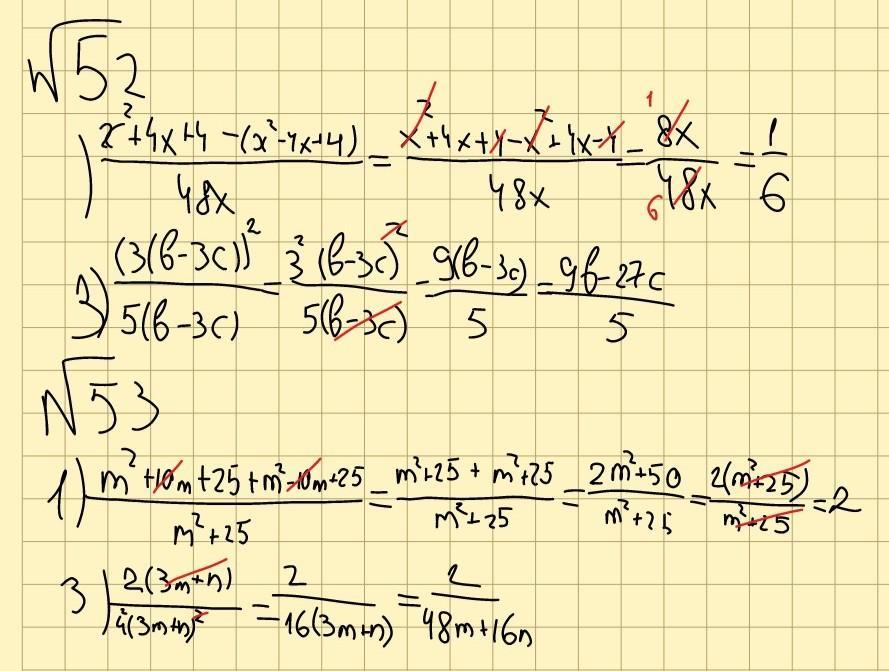 √52
1) (x²+4x+4-(x²-4x+4))/48x = (x²+4x+4-x²+4x-4)/48x = 8x/48x = 1/6
3) (3(в-3с))²/5(в-3с) = 3²(в-3с)²/5(в-3с) = 9(в-3с)/5 = 9в-27с/5
√53
1) m²+10m+25+m²-10m+25/m²+25 = m²+25+m²+25/m²+25 = 2m²+50/m²+25 = 2(m²+25)/m²+25 = 2
3) 2(3m+n)/4²(3m+n)² = 2/16(3m+n) = 2/48m+16n